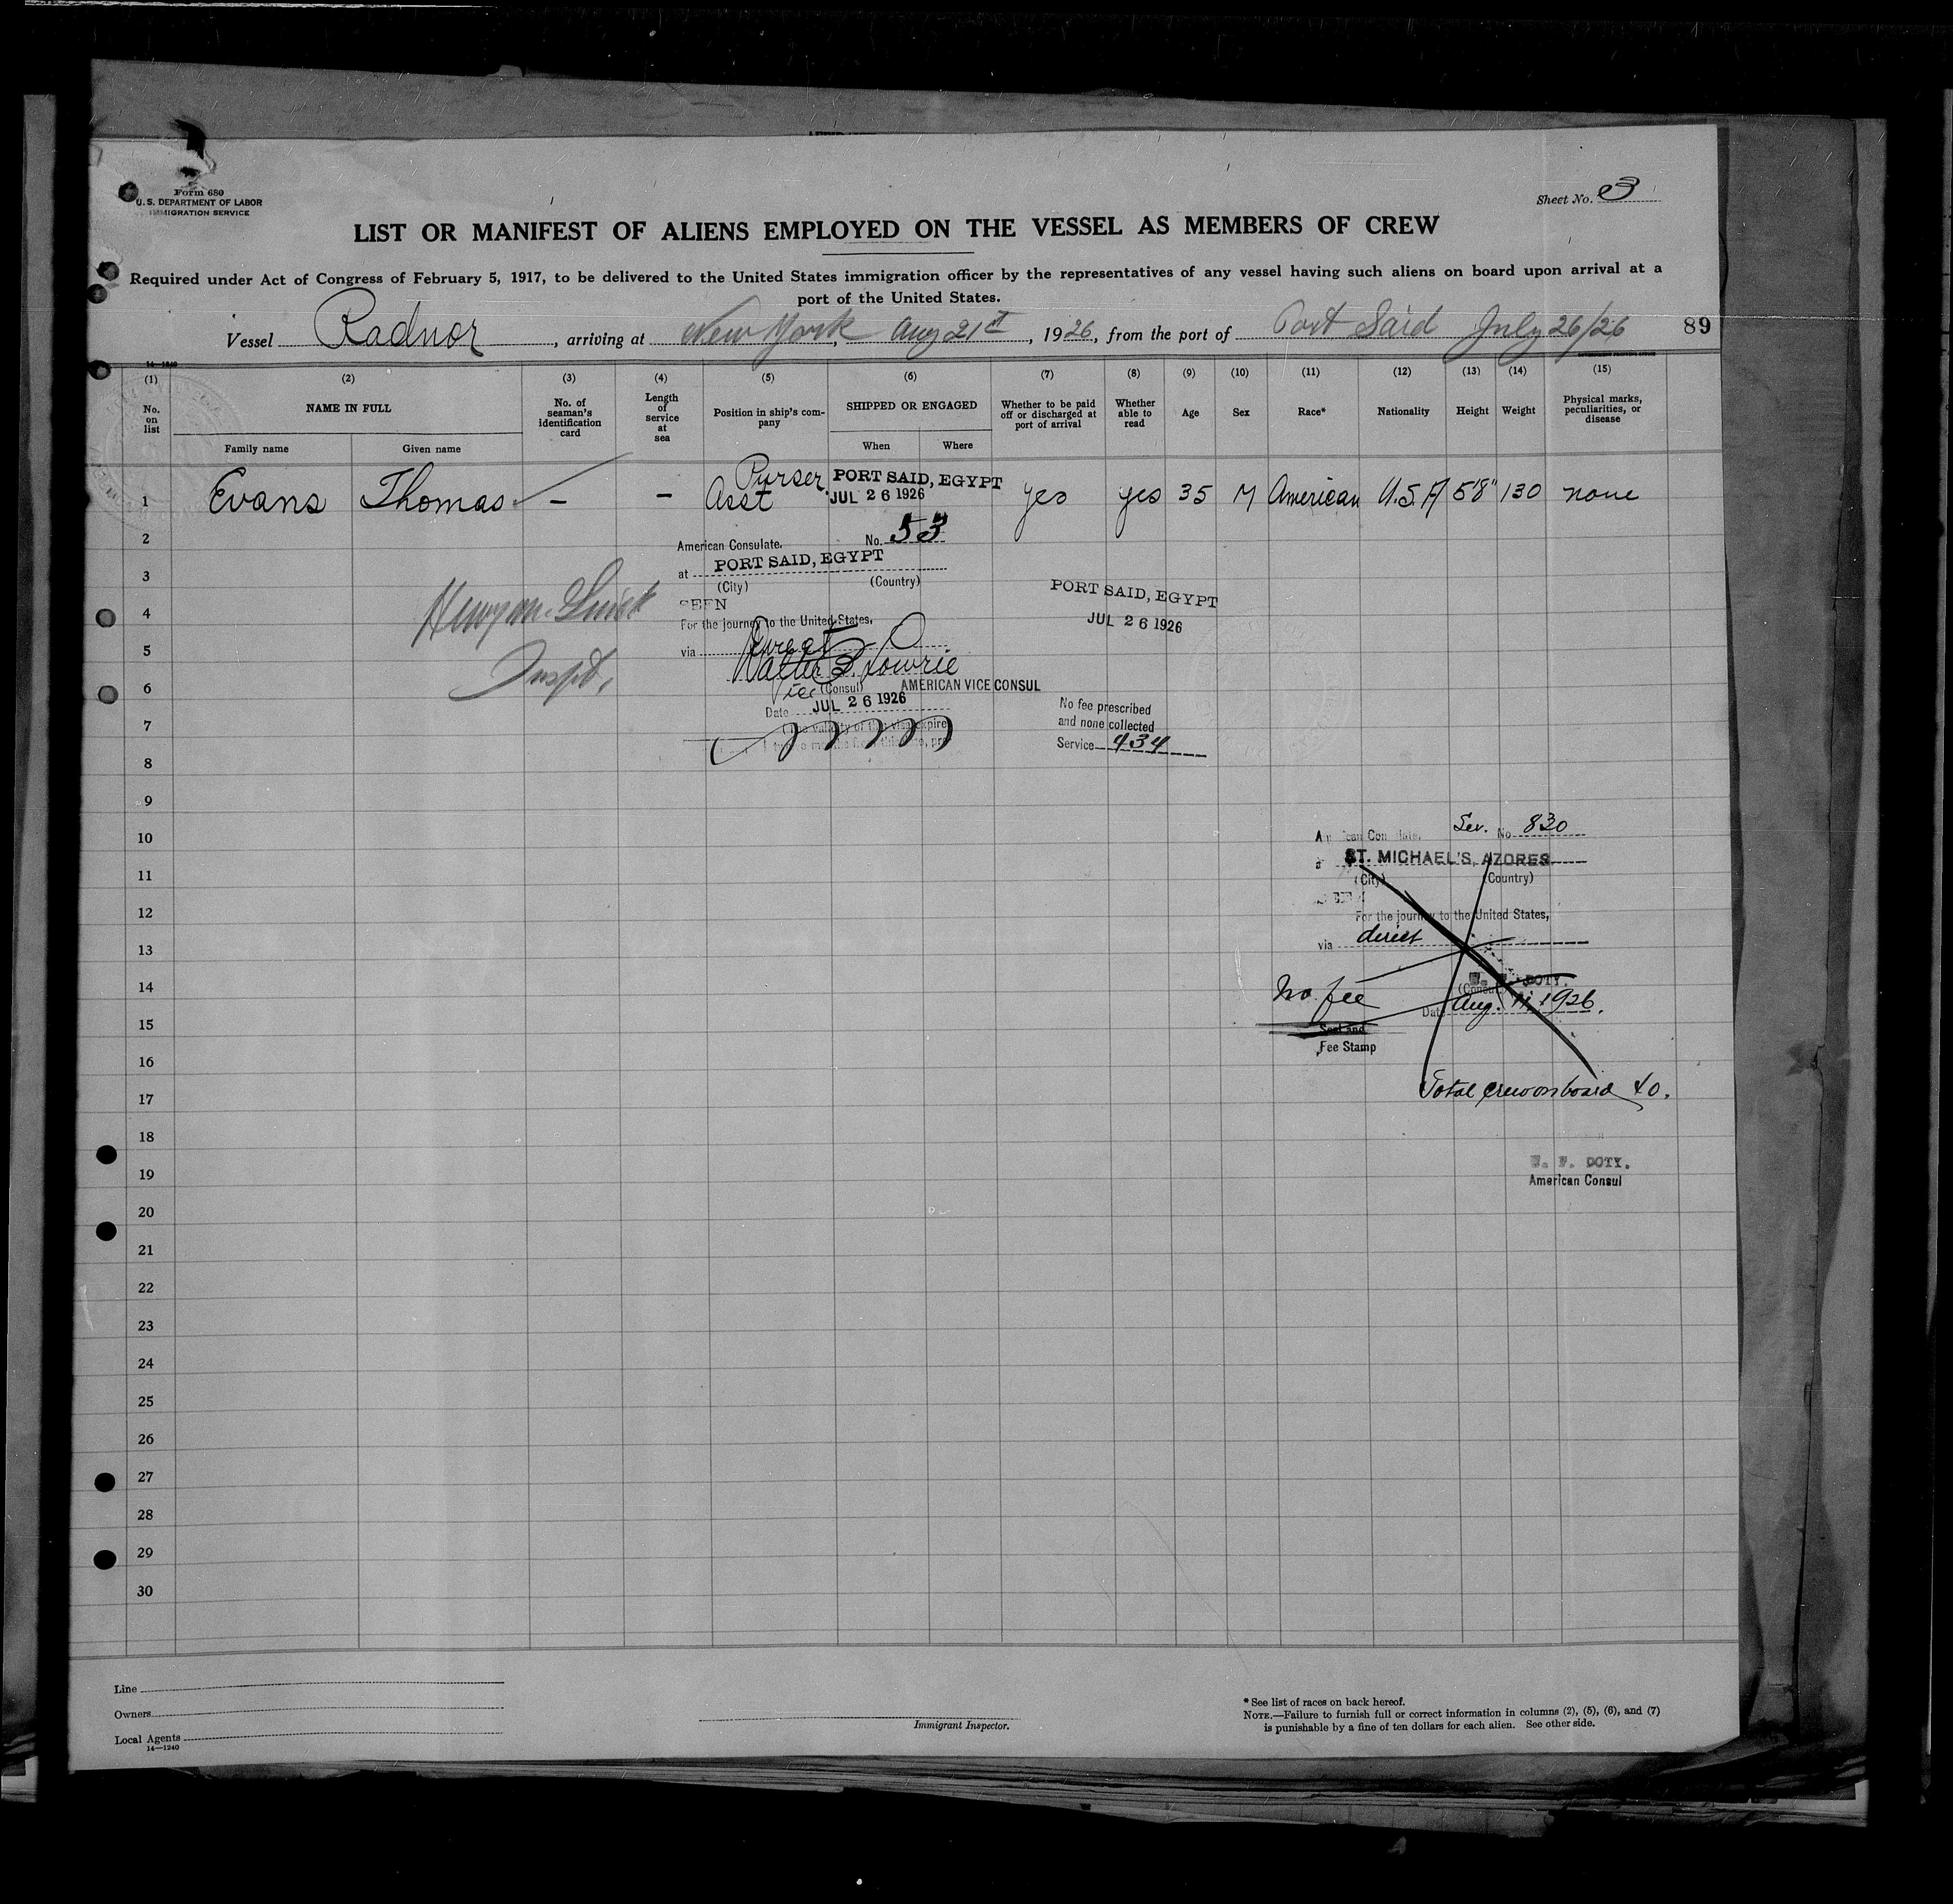 Form 680
U. S. DEPARTMENT OF LABOR
IMMIGRATION SERVICE
Sheet No. 3
LIST OR MANIFEST OF ALIENS EMPLOYED ON THE VESSEL AS MEMBERS OF CREW
Required under Act of Congress of February 5, 1917, to be delivered to the United States immigration officer by the representatives of any vessel having such aliens on board upon arrival at a
port of the United States.
Vessel Radnor, arriving at New York, Aug 21st, 1926, from the port of Port Said July 26/26 89
14—1240
(1) (2) (3) (4) (5) (6) (7) (8) (9) (10) (11) (12) (13) (14) (15)
No. on list
NAME IN FULL
Family name
Given name
No. of seaman's identification card
Length of service at sea
Position in ship's company
SHIPPED OR ENGAGED
When
Where
Whether to be paid off or discharged at port of arrival
Whether able to read
Age
Sex
Race*
Nationality
Height
Weight
Physical marks, peculiarities, or disease
1 Evans Thomas — – Asst Purser PORT SAID, EGYPT JUL 26 1926 yes yes 35 M American U.S.A 5'8" 130 none
2
3
4
5
6
7
8
9
10
11
12
13
14
15
16
17
18
19
20
21
22
23
24
25
26
27
28
29
30
American Consulate. No. 53
at PORT SAID, EGYPT
(City) (Country)
SEEN
For the journey to the United States,
via Direct
Walter S. Lowrie
Vice (Consul) AMERICAN VICE CONSUL
Date JUL 26 1926
Inspt.
PORT SAID, EGYPT
JUL 26 1926
No fee prescribed
and none collected
Service 434
American Consulate. Ser. No. 830
ST. MICHAEL'S, AZORES
(City) (Country)
For the journey to the United States,
via direct
W. F. DOTY.
(Consul)
No fee
Date Aug. 11, 1926.
Seal and
Fee Stamp
Total crew on board 40.
W. F. DOTY.
American Consul
Line
Owners
Local Agents
14—1240
Immigrant Inspector.
* See list of races on back hereof.
NOTE.—Failure to furnish full or correct information in columns (2), (5), (6), and (7)
is punishable by a fine of ten dollars for each alien. See other side.